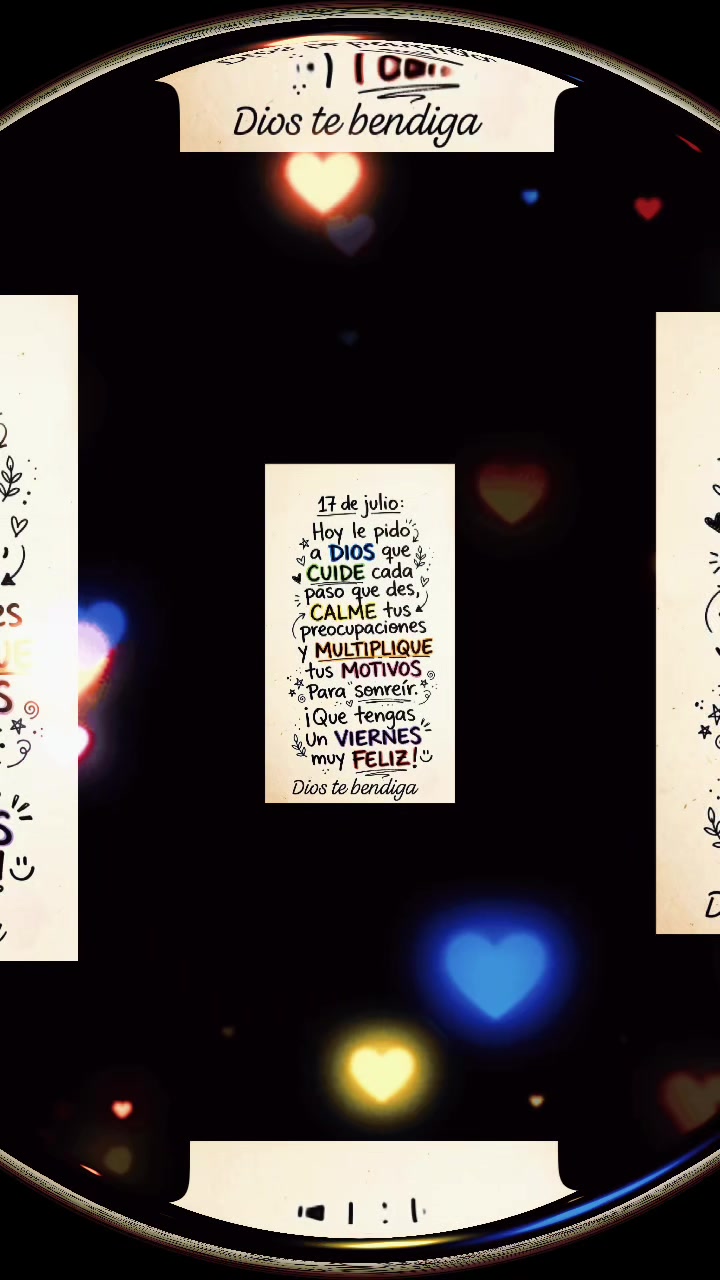 Dios te bendiga
17 de julio:
Hoy le pido
a DIOS que
CUIDE cada
paso que des,
CALME tus
preocupaciones
y MULTIPLIQUE
tus MOTIVOS
Para sonreír.
¡Que tengas
un VIERNES
muy FELIZ!
Dios te bendiga